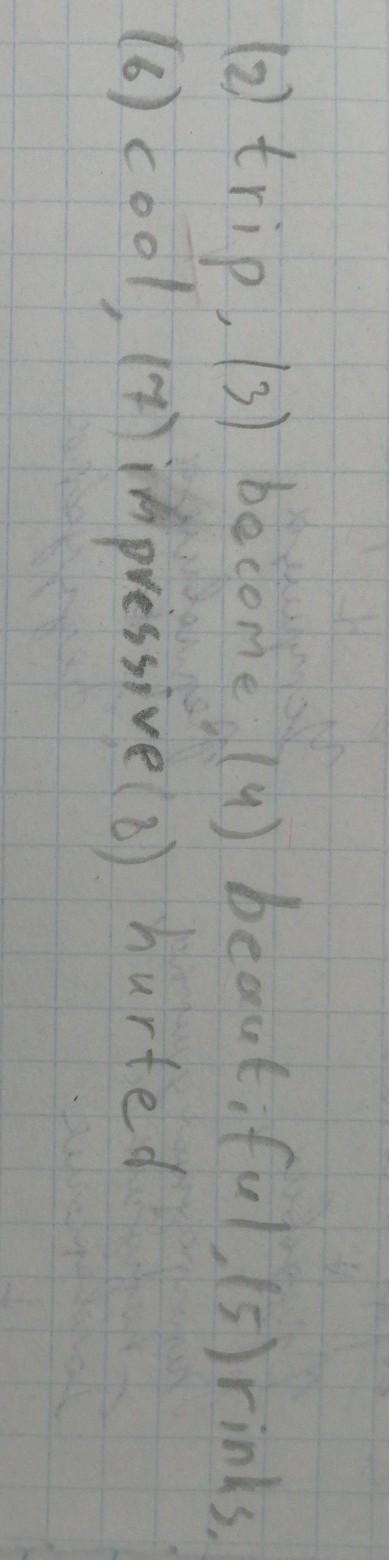 (2) trip, (3) become (4) beautiful, (5) rinks,
(6) cool, (7) impressive (8) hurted